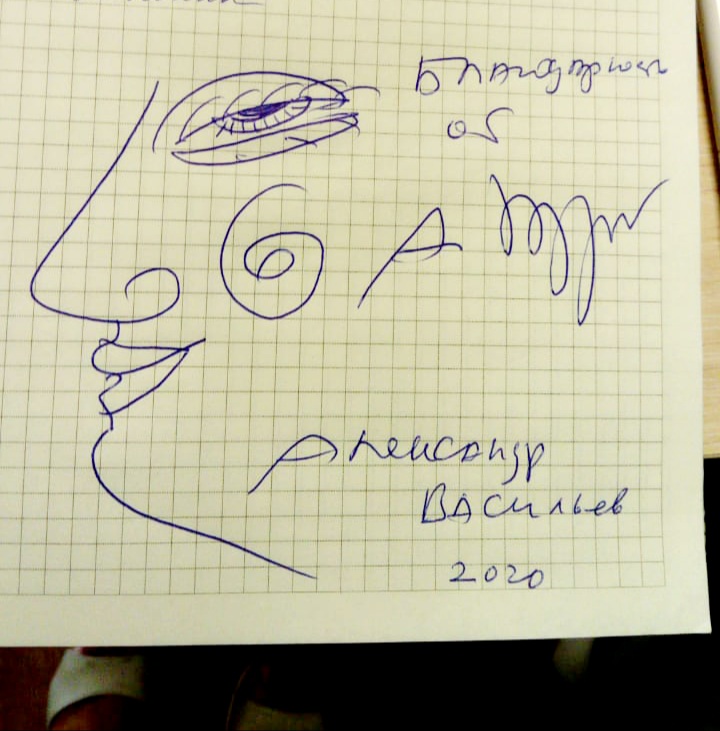 Благодарность
от
Александр
Васильев
2020